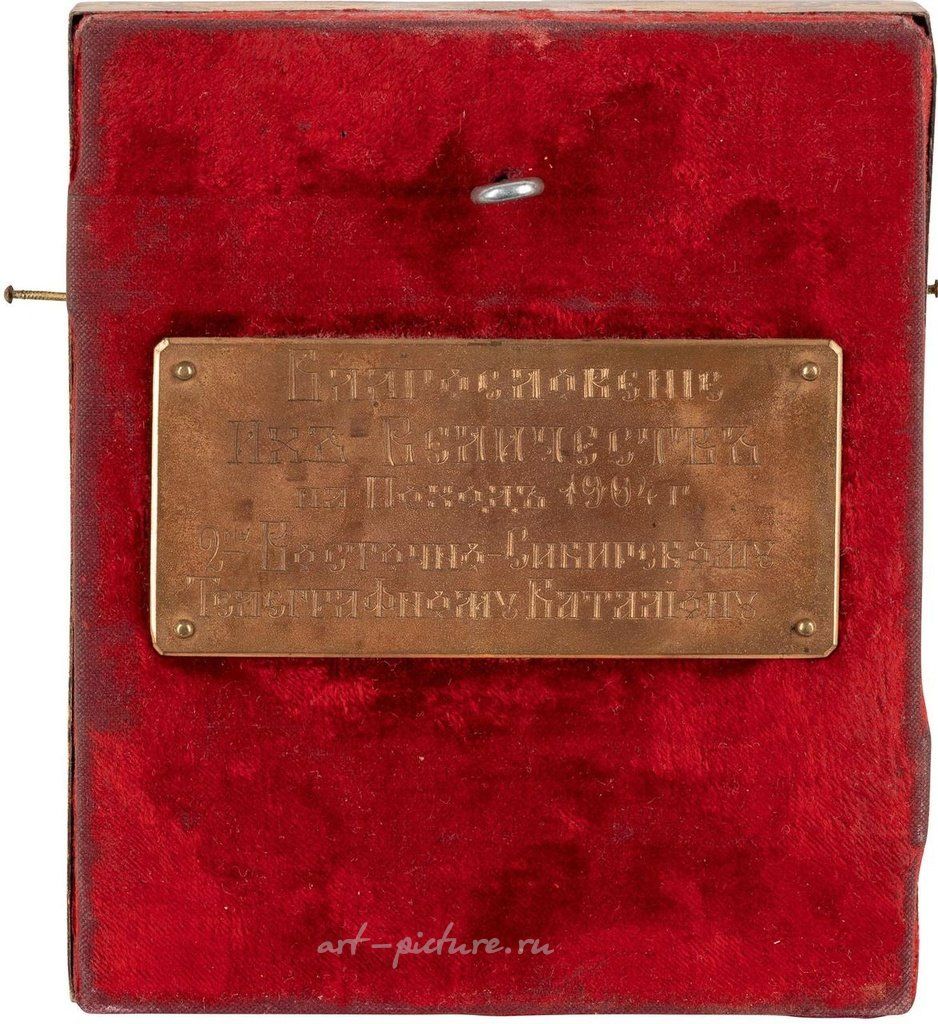 Благословенiе
Ихъ Величествъ
на Походъ 1904 г
2му Восточно-Сибирскому
Телеграфному Баталiону
art-picture.ru